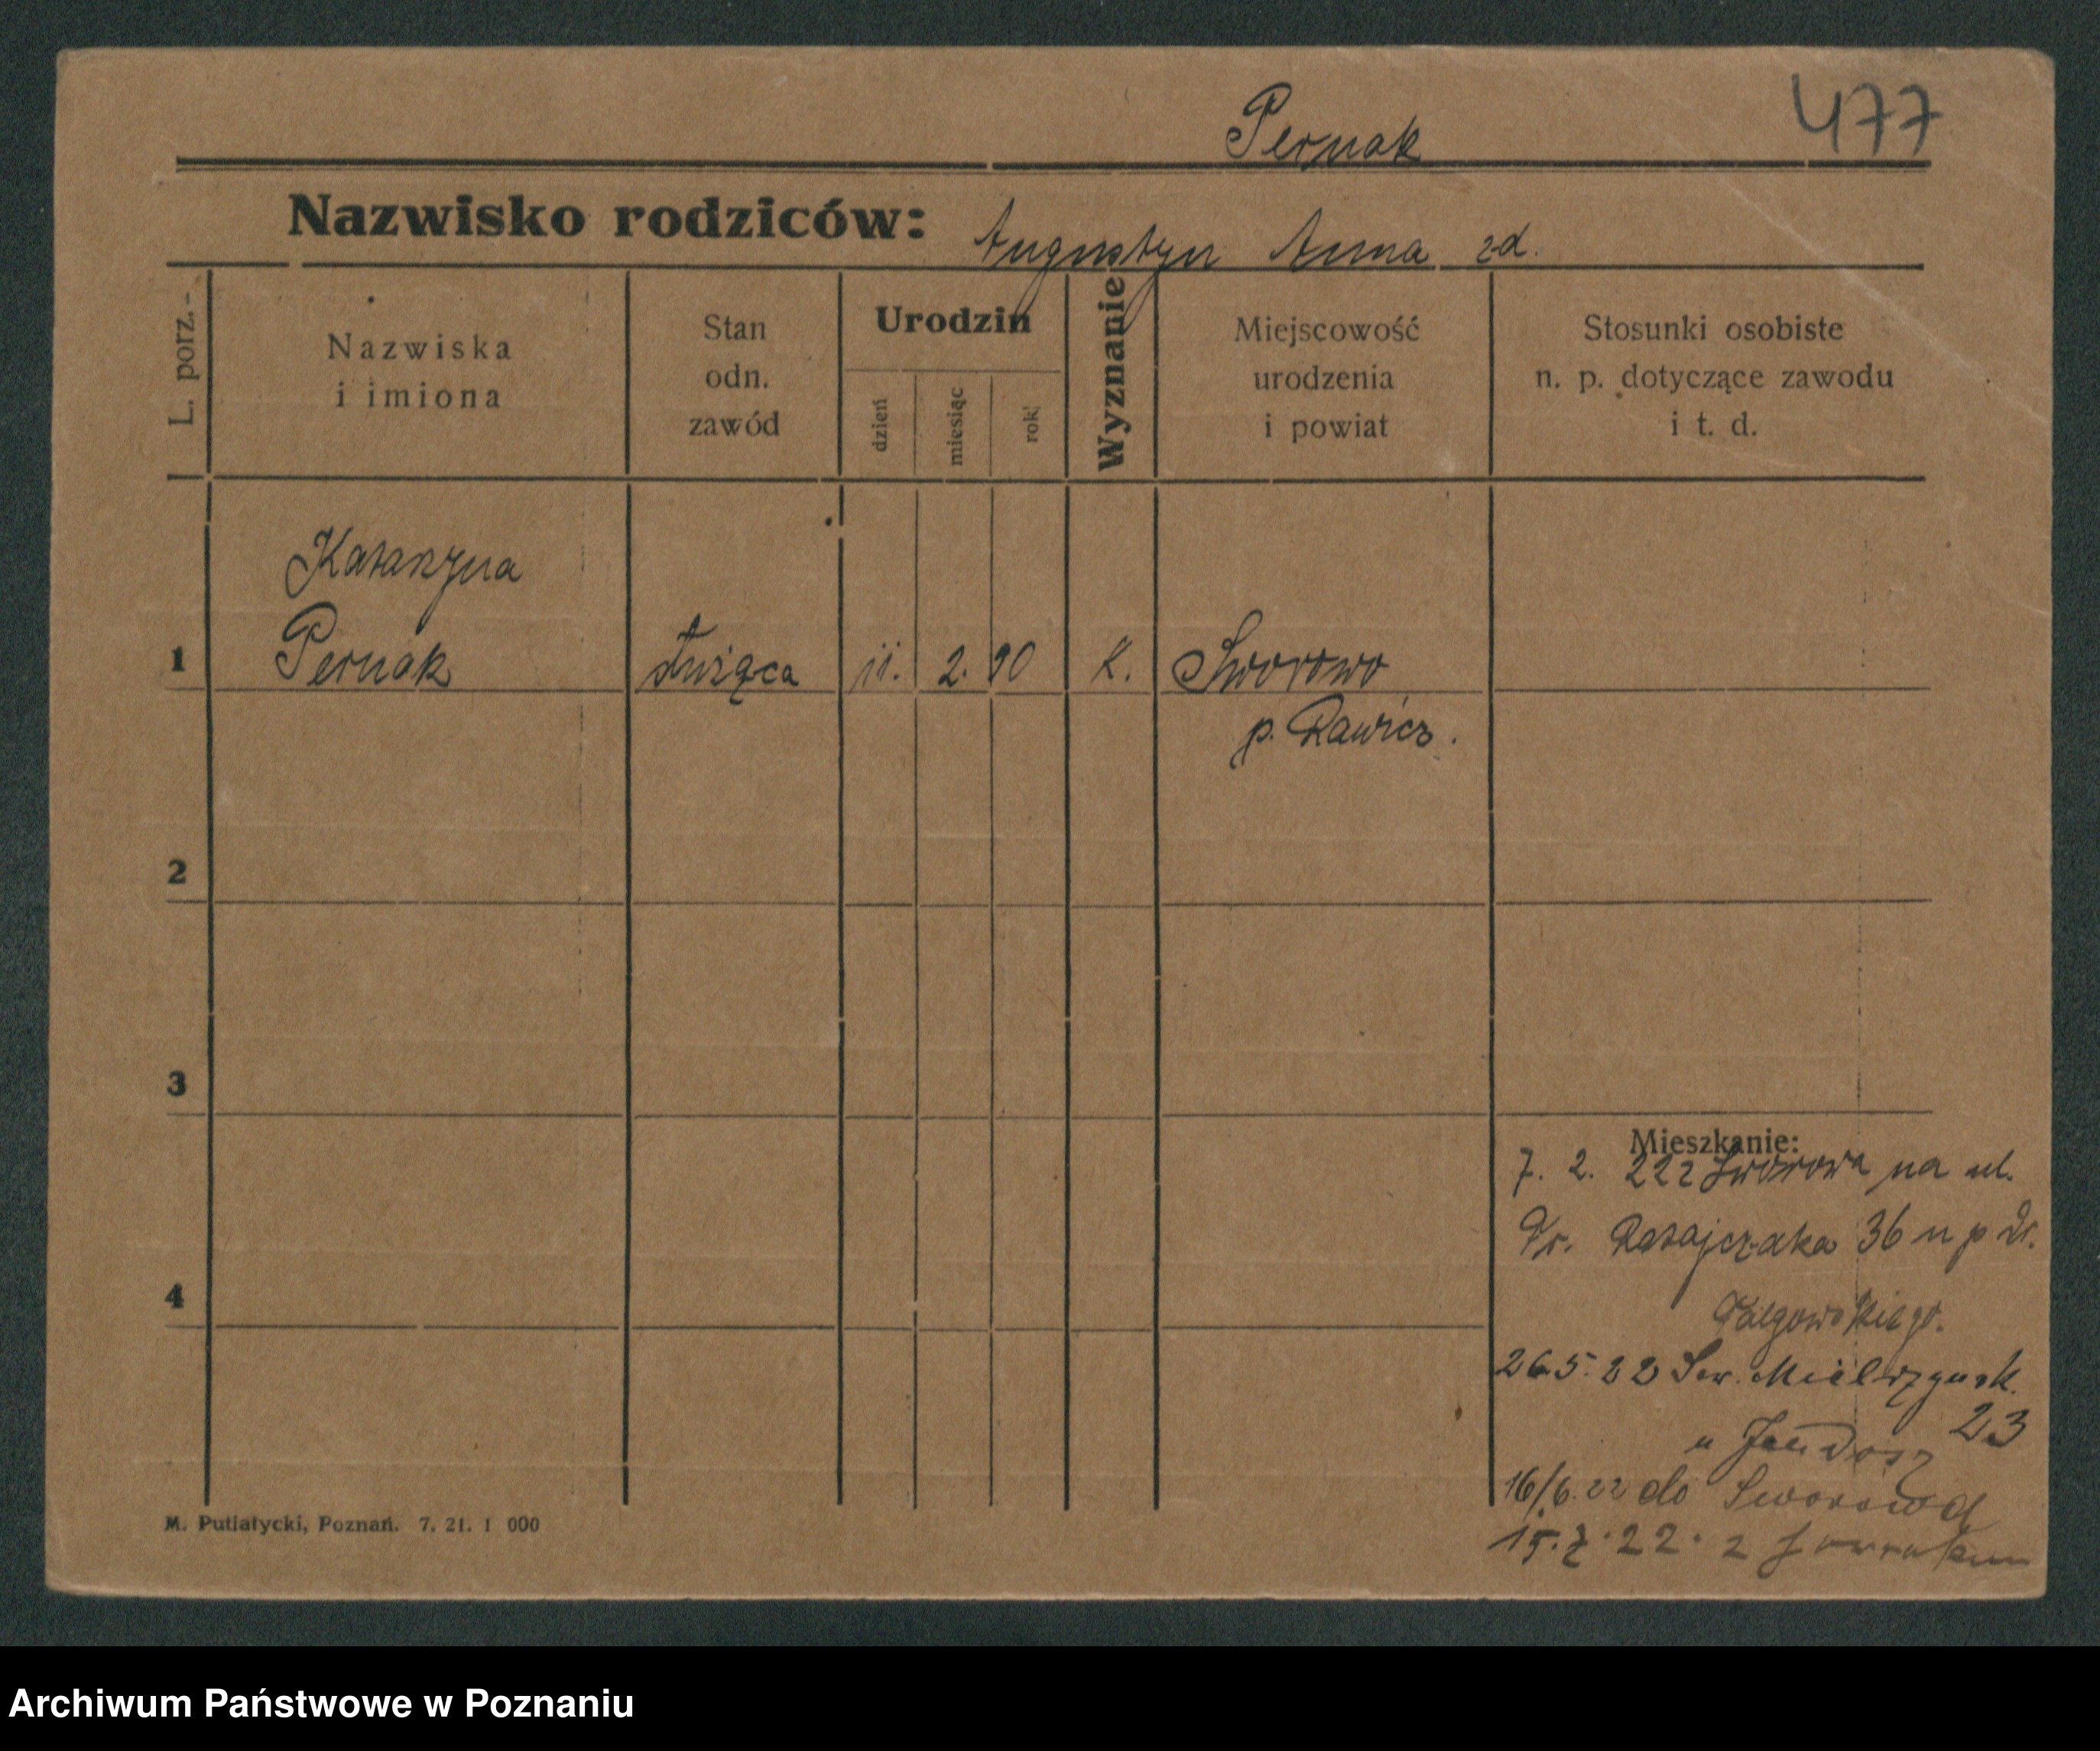 477
Pernak
Nazwisko rodziców: Augustyn Anna zd.
L. porz.
Nazwiska i imiona
Stan odn. zawód
Urodzin
dzień
miesiąc
rok
Wyznanie
Miejscowość urodzenia i powiat
Stosunki osobiste n. p. dotyczące zawodu i t. d.
Katarzyna
1 Pernak służąca 11. 2. 90 k. Sworowo
p. Rawicz.
2
3
4
Mieszkanie:
7. 2. 22 z Sworowa na ul.
Fr. Ratajczaka 36 u p Dr.
26.5.22 Sew. Mielżyńsk.
23
16/6.22 do Sworowa
15.7.22. z
M. Putiatycki, Poznań. 7. 21. 1 000
Archiwum Państwowe w Poznaniu